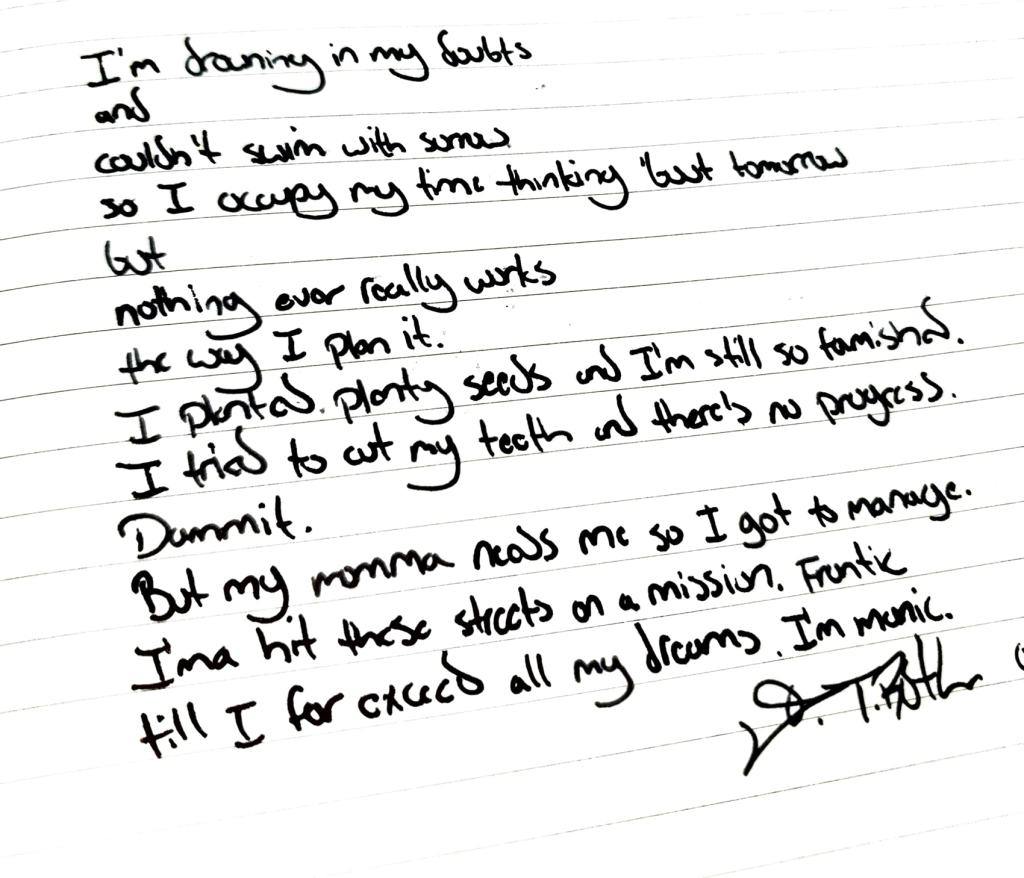 I'm drowning in my doubts
and
couldn't swim with sorrow
so I occupy my time thinking 'bout tomorrow
but
nothing ever really works
the way I plan it.
I planted plenty seeds and I'm still so famished.
I tried to cut my teeth and there's no progress.
Dammit.
But my momma needs me so I got to manage.
I'ma hit these streets on a mission. Frantic
till I far exceed all my dreams. I'm manic.